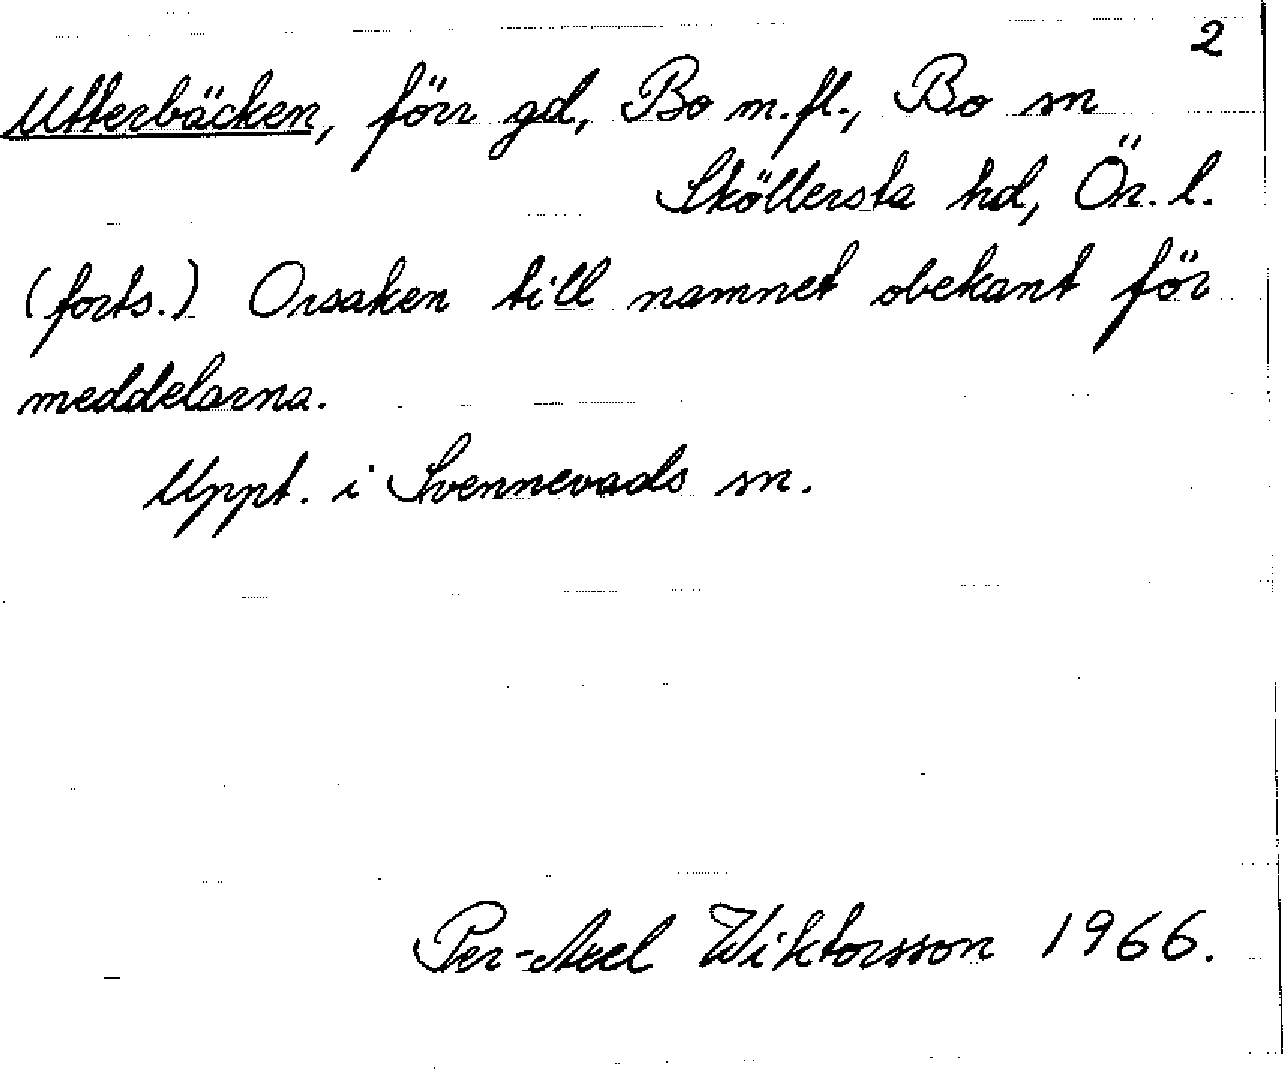 2
Utterbäcken, förr gd, Bo m.fl., Bo sn
Sköllersta hd, Ör. l.
(forts.) Orsaken till namnet obekant för
meddelarna.
Uppt. i Svennevads sn.
Per-Axel Wiktorsson 1966.